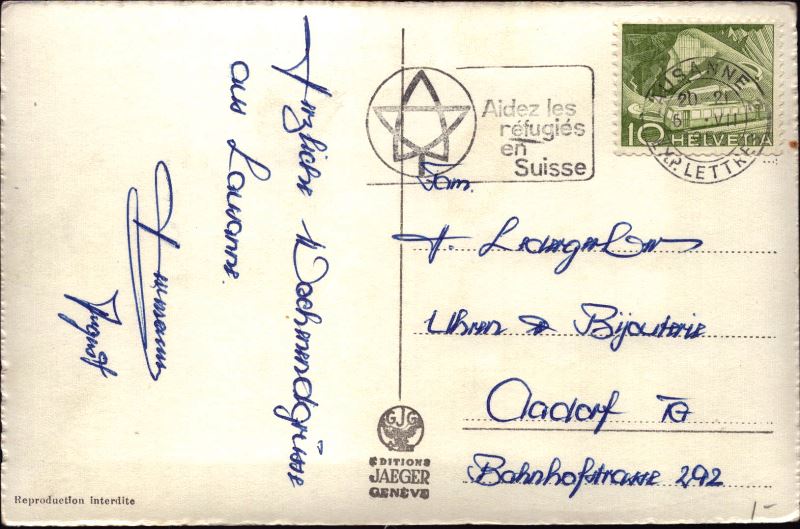 Herzliche Wochenendgrüsse
aus Lausanne.
Aidez les
réfugiés
en
Suisse
LAUSANNE
20-21
6 VII
EXP. LETTRES
10 HELVETIA
Fam.
H. Ledergerber
Uhren & Bijouterie
Aadorf TG
Bahnhofstrasse 292
GJG
EDITIONS
JAEGER
GENÈVE
Reproduction interdite
1-